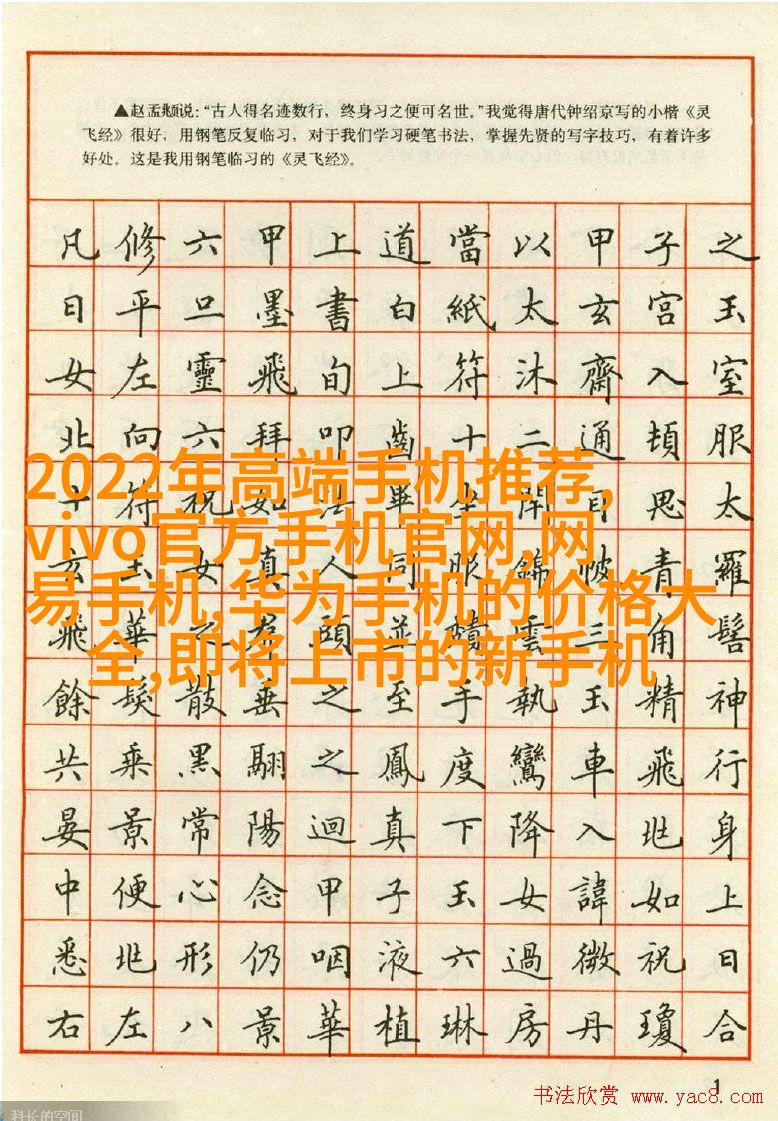 ▲赵孟頫说：“古人得名迹数行，终身习之便可名世。”我觉得唐代钟绍京写的小楷《灵
飞经》很好，用钢笔反复临习，对于我们学习硬笔书法，掌握先贤的写字技巧，有着许多
好处。这是我用钢笔临习的《灵飞经》。
凡修六甲上道當以甲子之
日平旦墨書白紙太玄宮玉
女左靈飛旬上符沐齋入室
北向六拜叩齒十二通頓服
2022年高端手机推荐,
十符祝如法畢坐開目思太
vivo官方手机官网,网
玄玉女真人同服錦帔青羅
易手机,华为手机的价格大
飛華之帬頭並頹雲三角髻
全,即将上市的新手机
餘髮散垂之至手執玉精神
共乘黑翮之鳳度鸞車飛行
晏景常陽迴真下降入此身
中便心念甲子玉女諱如上
悉此形仍咽液六過微祝日
右左八景華植琳房丹瓊合
1
书法欣赏 www.yac8.com
科长的空间